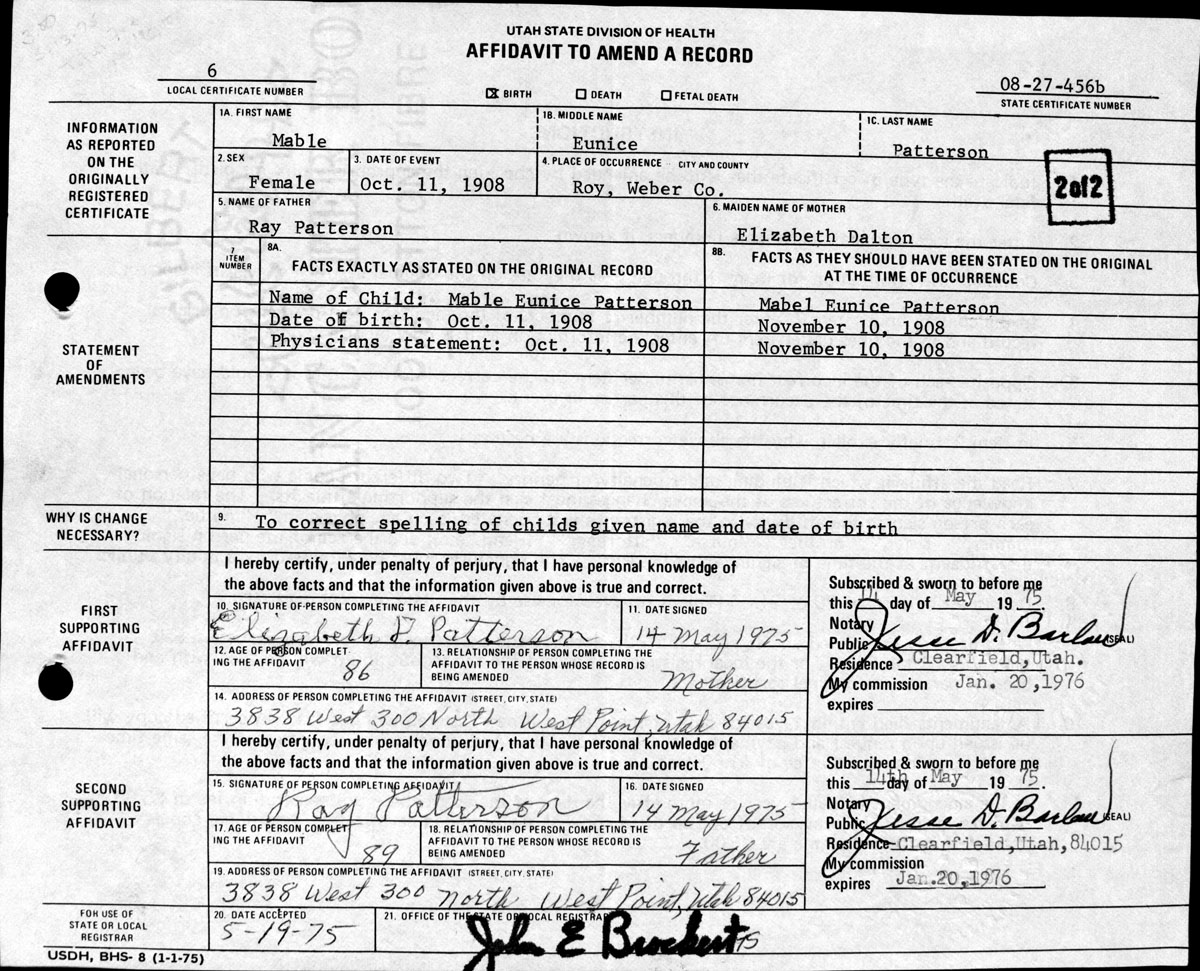 UTAH STATE DIVISION OF HEALTH
AFFIDAVIT TO AMEND A RECORD
6
LOCAL CERTIFICATE NUMBER
☒ BIRTH ☐ DEATH ☐ FETAL DEATH
08-27-456b
STATE CERTIFICATE NUMBER
INFORMATION
AS REPORTED
ON THE
ORIGINALLY
REGISTERED
CERTIFICATE
1A. FIRST NAME
Mable
1B. MIDDLE NAME
Eunice
1C. LAST NAME
Patterson
2. SEX
Female
3. DATE OF EVENT
Oct. 11, 1908
4. PLACE OF OCCURRENCE - CITY AND COUNTY
Roy, Weber Co.
2 of 2
5. NAME OF FATHER
Ray Patterson
6. MAIDEN NAME OF MOTHER
Elizabeth Dalton
STATEMENT
OF
AMENDMENTS
7
ITEM
NUMBER
8A.
FACTS EXACTLY AS STATED ON THE ORIGINAL RECORD
8B.
FACTS AS THEY SHOULD HAVE BEEN STATED ON THE ORIGINAL
AT THE TIME OF OCCURRENCE
Name of Child: Mable Eunice Patterson
Mabel Eunice Patterson
Date of birth: Oct. 11, 1908
November 10, 1908
Physicians statement: Oct. 11, 1908
November 10, 1908
WHY IS CHANGE
NECESSARY?
9. To correct spelling of childs given name and date of birth
FIRST
SUPPORTING
AFFIDAVIT
I hereby certify, under penalty of perjury, that I have personal knowledge of
the above facts and that the information given above is true and correct.
10. SIGNATURE OF PERSON COMPLETING THE AFFIDAVIT
Elizabeth D. Patterson
11. DATE SIGNED
14 May 1975
12. AGE OF PERSON COMPLET-
ING THE AFFIDAVIT
86
13. RELATIONSHIP OF PERSON COMPLETING THE
AFFIDAVIT TO THE PERSON WHOSE RECORD IS
BEING AMENDED
Mother
14. ADDRESS OF PERSON COMPLETING THE AFFIDAVIT (STREET, CITY, STATE)
3838 West 300 North West Point, Utah 84015
Subscribed & sworn to before me
this 14 day of May 1975.
Notary
Public Jesse D. Barlow (SEAL)
Residence Clearfield,Utah.
My commission Jan. 20,1976
expires
SECOND
SUPPORTING
AFFIDAVIT
I hereby certify, under penalty of perjury, that I have personal knowledge of
the above facts and that the information given above is true and correct.
15. SIGNATURE OF PERSON COMPLETING AFFIDAVIT
Ray Patterson
16. DATE SIGNED
14 May 1975
17. AGE OF PERSON COMPLET-
ING THE AFFIDAVIT
89
18. RELATIONSHIP OF PERSON COMPLETING THE
AFFIDAVIT TO THE PERSON WHOSE RECORD IS
BEING AMENDED
Father
19. ADDRESS OF PERSON COMPLETING THE AFFIDAVIT (STREET, CITY, STATE)
3838 West 300 North West Point, Utah 84015
Subscribed & sworn to before me
this 14th day of May 1975.
Notary
Public Jesse D. Barlow (SEAL)
Residence Clearfield,Utah,84015
My commission
expires Jan.20,1976
FOR USE OF
STATE OR LOCAL
REGISTRAR
20. DATE ACCEPTED
5-19-75
21. OFFICE OF THE STATE OR LOCAL REGISTRAR
John E Brockert
USDH, BHS- 8 (1-1-75)